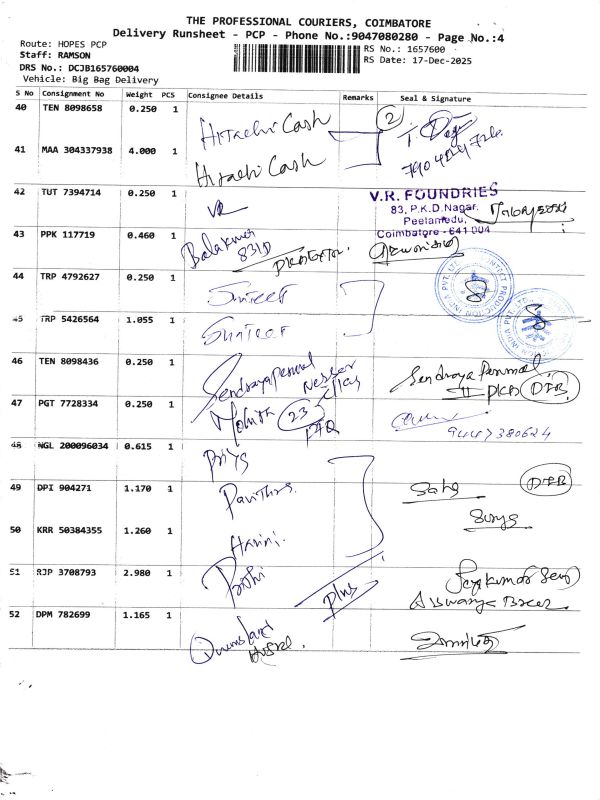 THE PROFESSIONAL COURIERS, COIMBATORE
Delivery Runsheet - PCP - Phone No.:9047080280 - Page No.:4
Route: HOPES PCP
Staff: RAMSON
DRS No.: DCJB165760004
Vehicle: Big Bag Delivery
RS No.: 1657600
RS Date: 17-Dec-2025
S No Consignment No Weight PCS Consignee Details Remarks Seal & Signature
40 TEN 8098658 0.250 1 Hitachi Cash 2
41 MAA 304337938 4.000 1 Hitachi Cash
42 TUT 7394714 0.250 1 VR
V.R. FOUNDRIES
83, P.K.D.Nagar,
Peelamedu,
Coimbatore - 641 004
43 PPK 117719 0.460 1 Balakumar
831D
44 TRP 4792627 0.250 1 Sunteef
45 TRP 5426564 1.055 1 Sunteef
46 TEN 8098436 0.250 1 Sendrayaperumal
Sendraya Perumal
47 PGT 7728334 0.250 1 Mohith 23
9447380624
48 NGL 200096034 0.615 1 Priya
49 DPI 904271 1.170 1 Pavithra
Surya
50 KRR 50384355 1.260 1 Harini
51 RJP 3708793 2.980 1 Prithi
plus
52 DPM 782699 1.165 1